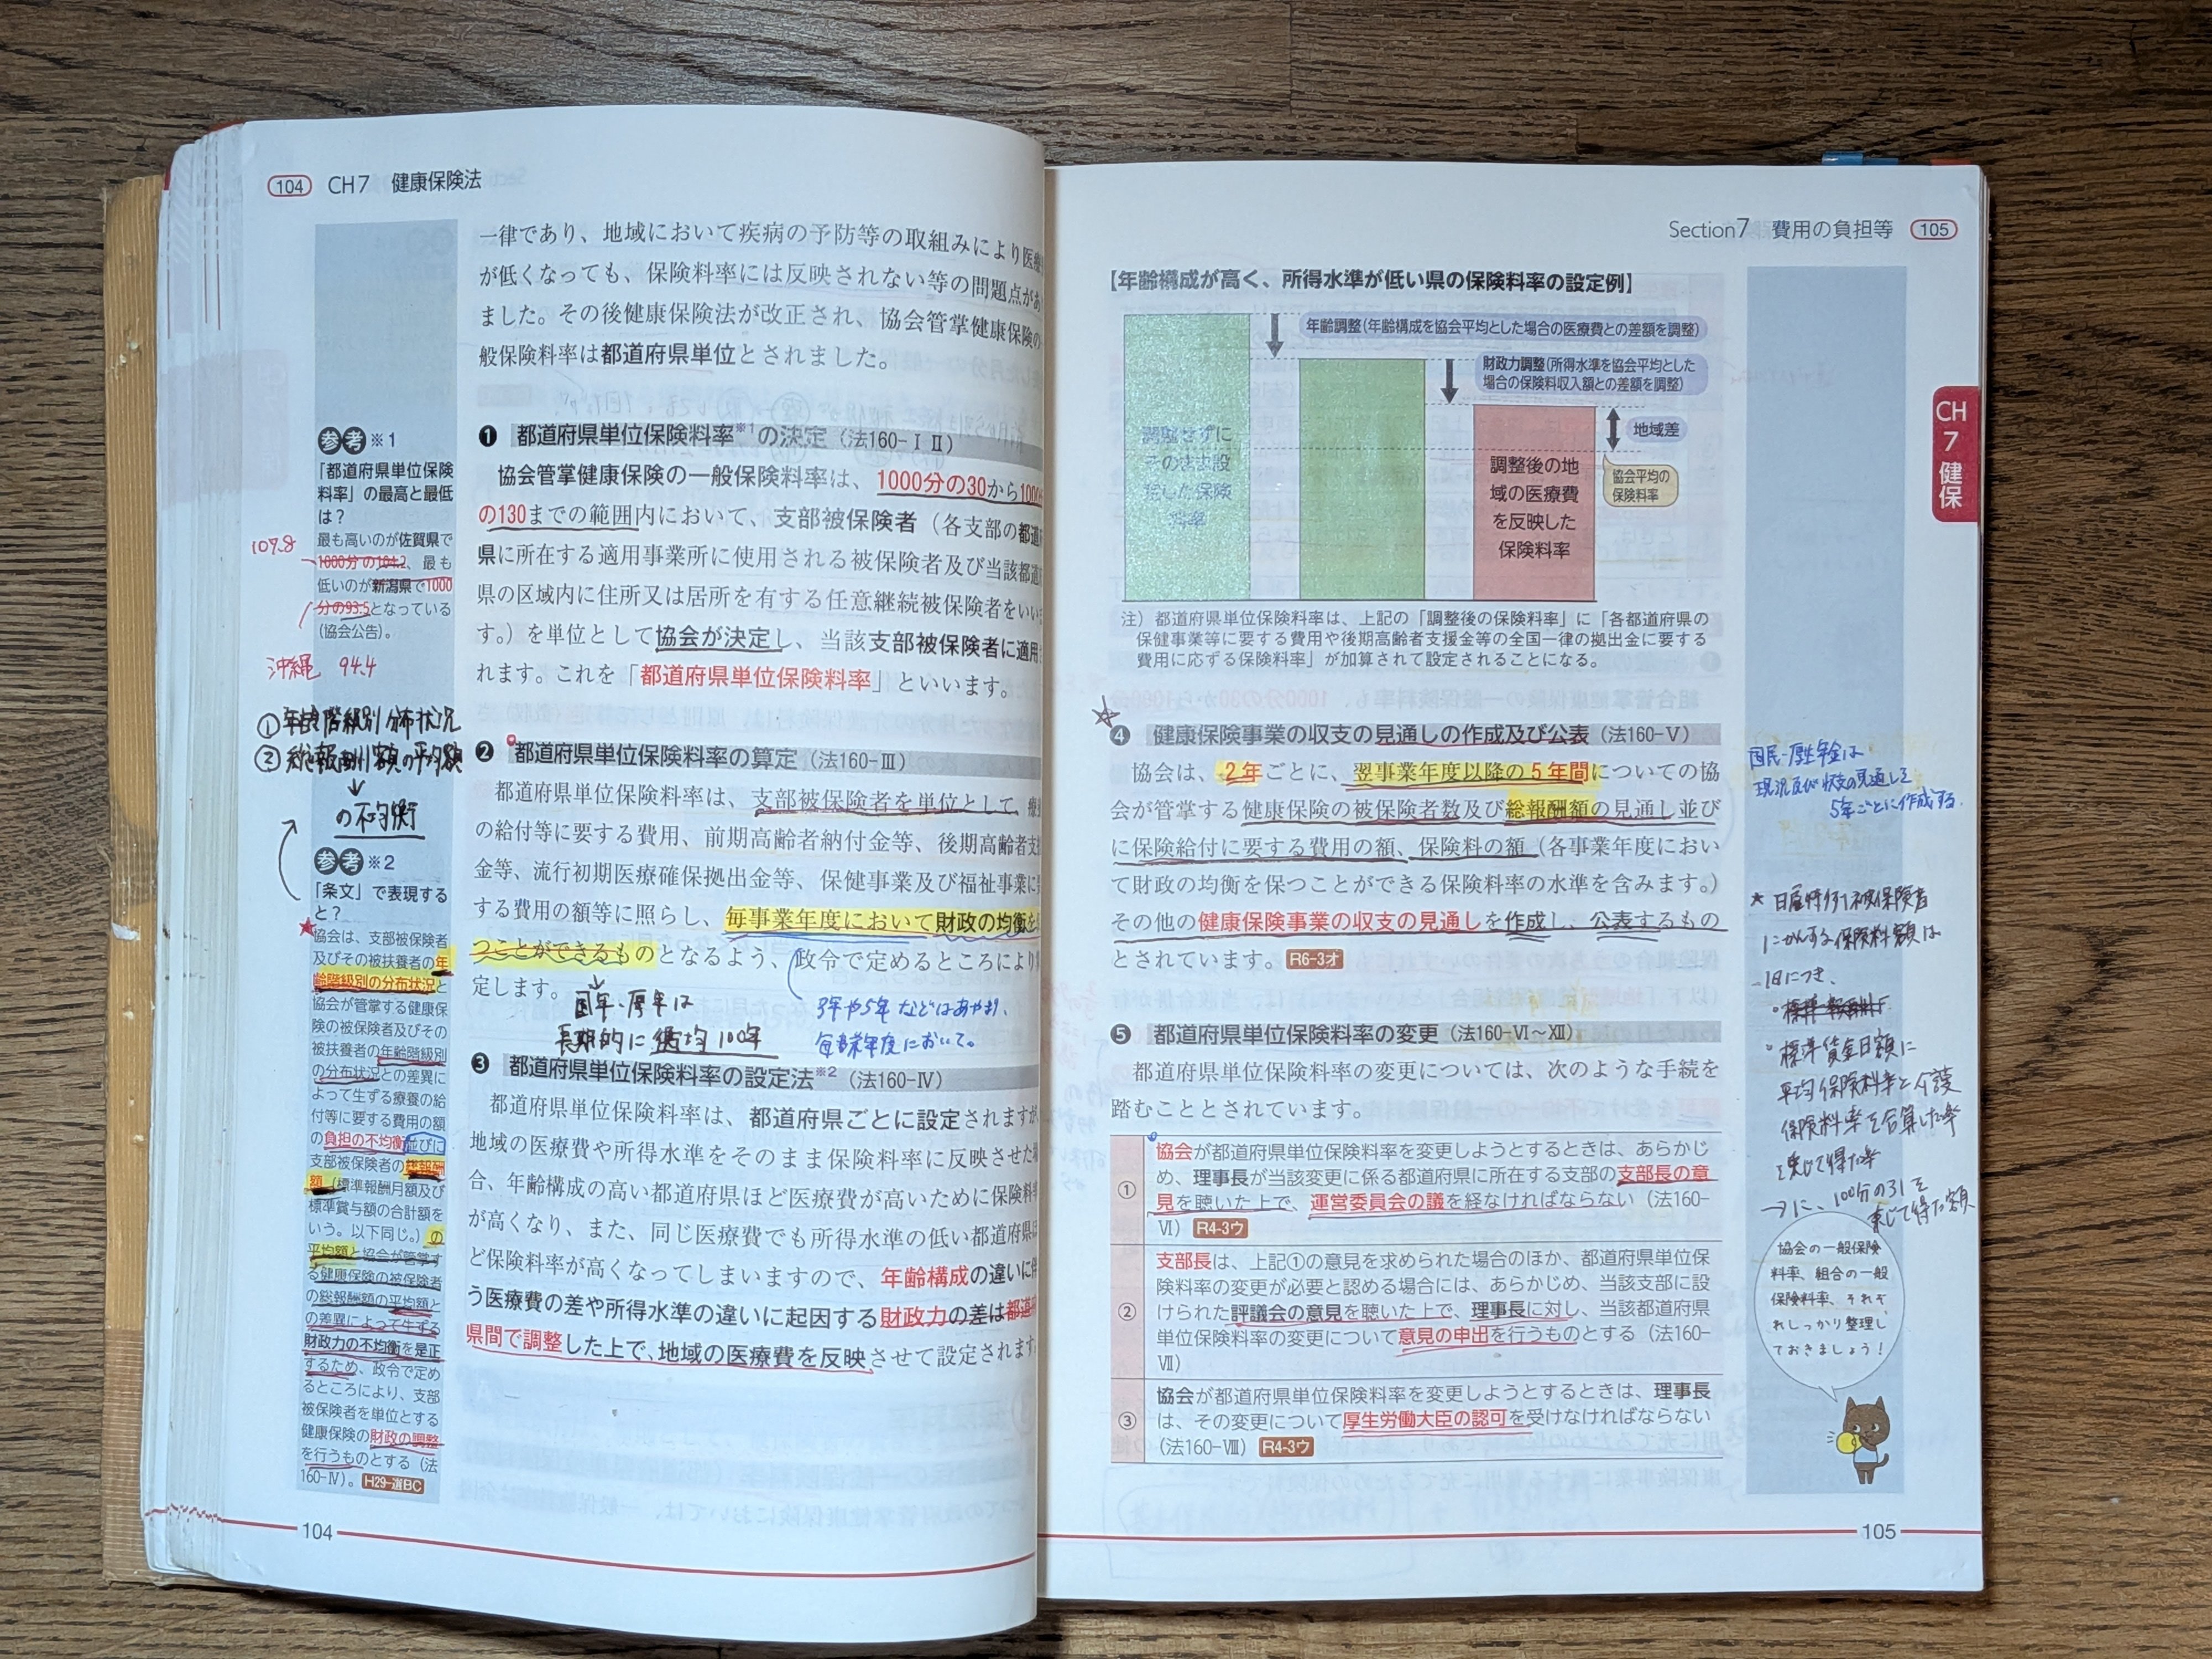 104 CH7 健康保険法
一律であり、地域において疾病の予防等の取組みにより医療
が低くなっても、保険料率には反映されない等の問題点があ
ました。その後健康保険法が改正され、協会管掌健康保険の
般保険料率は都道府県単位とされました。
❶ 都道府県単位保険料率※1の決定（法160-ⅠⅡ）
協会管掌健康保険の一般保険料率は、1000分の30から1000
の130までの範囲内において、支部被保険者（各支部の都道
県に所在する適用事業所に使用される被保険者及び当該都道
県の区域内に住所又は居所を有する任意継続被保険者をいい
す。）を単位として協会が決定し、当該支部被保険者に適用
れます。これを「都道府県単位保険料率」といいます。
❷ 都道府県単位保険料率の算定（法160-Ⅲ）
都道府県単位保険料率は、支部被保険者を単位として、療
の給付等に要する費用、前期高齢者納付金等、後期高齢者支
金等、流行初期医療確保拠出金等、保健事業及び福祉事業に
する費用の額等に照らし、毎事業年度において財政の均衡を
つことができるものとなるよう、政令で定めるところにより
定します。
国年・厚年は
長期的に 均 100年
3年や5年などはあやまり、
毎事業年度において。
❸ 都道府県単位保険料率の設定法※2（法160-Ⅳ）
都道府県単位保険料率は、都道府県ごとに設定されますが
地域の医療費や所得水準をそのまま保険料率に反映させた
合、年齢構成の高い都道府県ほど医療費が高いために保険料
が高くなり、また、同じ医療費でも所得水準の低い都道府県
ど保険料率が高くなってしまいますので、年齢構成の違いに
う医療費の差や所得水準の違いに起因する財政力の差は都道
県間で調整した上で、地域の医療費を反映させて設定されます
参考※1
「都道府県単位保険
料率」の最高と最低
は？
最も高いのが佐賀県で
1000分の104.2、最も
低いのが新潟県で1000
分の93.5となっている
（協会公告）。
107.8
沖縄 94.4
①年齢階級別分布状況
②総報酬額の平均額
↓
の不均衡
参考※2
「条文」で表現する
と？
★協会は、支部被保険者
及びその被扶養者の年
齢階級別の分布状況と
協会が管掌する健康保
険の被保険者及びその
被扶養者の年齢階級別
の分布状況との差異に
よって生ずる療養の給
付等に要する費用の額
の負担の不均衡並びに
支部被保険者の総報酬
額（標準報酬月額及び
標準賞与額の合計額を
いう。以下同じ。）の
平均額と協会が管掌す
る健康保険の被保険者
の総報酬額の平均額と
の差異によって生ずる
財政力の不均衡を是正
するため、政令で定め
るところにより、支部
被保険者を単位とする
健康保険の財政の調整
を行うものとする（法
160-Ⅳ）。H29-選BC
104
Section7 費用の負担等 105
【年齢構成が高く、所得水準が低い県の保険料率の設定例】
年齢調整（年齢構成を協会平均とした場合の医療費との差額を調整）
財政力調整（所得水準を協会平均とした
場合の保険料収入額との差額を調整）
地域差
協会平均の
保険料率
調整せずに
そのまま設
定した保険
料率
調整後の地
域の医療費
を反映した
保険料率
注）都道府県単位保険料率は、上記の「調整後の保険料率」に「各都道府県の
保健事業等に要する費用や後期高齢者支援金等の全国一律の拠出金に要する
費用に応ずる保険料率」が加算されて設定されることになる。
❹ 健康保険事業の収支の見通しの作成及び公表（法160-Ⅴ）
協会は、2年ごとに、翌事業年度以降の5年間についての協
会が管掌する健康保険の被保険者数及び総報酬額の見通し並び
に保険給付に要する費用の額、保険料の額（各事業年度におい
て財政の均衡を保つことができる保険料率の水準を含みます。）
その他の健康保険事業の収支の見通しを作成し、公表するもの
とされています。R6-3オ
❺ 都道府県単位保険料率の変更（法160-Ⅵ～Ⅻ）
都道府県単位保険料率の変更については、次のような手続を
踏むこととされています。
① 協会が都道府県単位保険料率を変更しようとするときは、あらかじ
め、理事長が当該変更に係る都道府県に所在する支部の支部長の意
見を聴いた上で、運営委員会の議を経なければならない（法160-
Ⅵ）R4-3ウ
② 支部長は、上記①の意見を求められた場合のほか、都道府県単位保
険料率の変更が必要と認める場合には、あらかじめ、当該支部に設
けられた評議会の意見を聴いた上で、理事長に対し、当該都道府県
単位保険料率の変更について意見の申出を行うものとする（法160-
Ⅶ）
③ 協会が都道府県単位保険料率を変更しようとするときは、理事長
は、その変更について厚生労働大臣の認可を受けなければならない
（法160-Ⅷ）R4-3ウ
CH
7
健保
国民・厚生年金は
現況及び収支の見通しを
5年ごとに作成する。
★日雇特例被保険者
にかんする保険料額は
1日につき、
標準賃金日額に
平均保険料率と介護
保険料率を合算した率
を乗じて得た率
→に、100分の31を
乗じて得た額
協会の一般保険
料率、組合の一般
保険料率、それぞ
れしっかり整理し
ておきましょう！
105